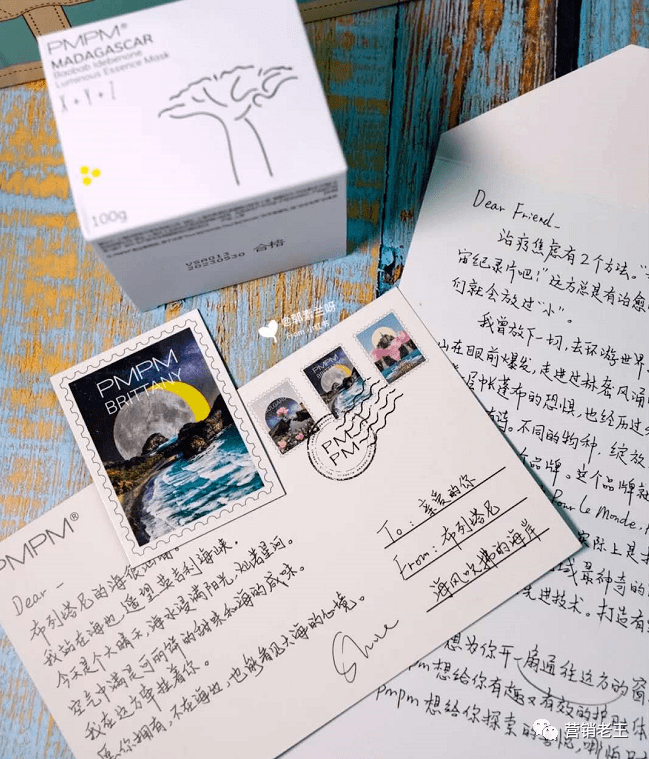 PMPM®
MADAGASCAR
Baobab Idebenone
Luminous Essence Mask
X + Y + Z
100g
VS6013
20230530 合格
Dear Friend_
治疗焦虑有2个方法。"
宙纪录片吧!"远方总是有治愈
们就会放过"小"。
我曾放下一切,去环游世界
在眼前爆发,走进过
的恐惧,也经历过
诗。不同的物种,绽放
个品牌。这个品牌就
Pour Le Monde,
实际上是
最神奇的
先进技术。打造有
想为你开一扇通往远方的窗
pm想给你有趣又有效的护肤体
pmpm想给你探索的
PMPM
BRITTANY
PMPM
PMPM
PM-
To: 亲爱的你
From: 布列塔尼
海风吹拂的海岸
PMPM®
Dear_
布列塔尼的海很
我站在海边,遥望英吉利海峡.
今天是个大晴天,海水浸满阳光,灿若星河。
空气中满是可丽饼的甜味和海的咸味。
我在远方牵挂着你。
愿你拥有,不在海边,也能看见大海的心境。
营销老王